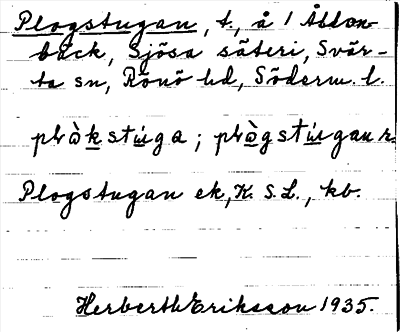 Plogstugan, t., å 1 Åldon-
bäck, Sjösa säteri, Svär-
ta sn, Rönö hd, Söderm. l.
plòkstuga; plògstugan r.
Plogstugan ek, K. S. L., kb.
Herberth Eriksson 1935.